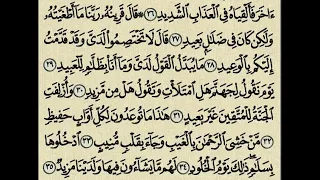 ءَاخَرَ فَأَلْقِيَاهُ فِي ٱلْعَذَابِ ٱلشَّدِيدِ ٢٦ ۞ قَالَ قَرِينُهُۥ رَبَّنَا مَآ أَطْغَيْتُهُۥ
وَلَٰكِن كَانَ فِي ضَلَٰلٍۭ بَعِيدٍ ٢٧ قَالَ لَا تَخْتَصِمُوا۟ لَدَىَّ وَقَدْ قَدَّمْتُ
إِلَيْكُم بِٱلْوَعِيدِ ٢٨ مَا يُبَدَّلُ ٱلْقَوْلُ لَدَىَّ وَمَآ أَنَا۠ بِظَلَّٰمٍ لِّلْعَبِيدِ ٢٩
يَوْمَ نَقُولُ لِجَهَنَّمَ هَلِ ٱمْتَلَأْتِ وَتَقُولُ هَلْ مِن مَّزِيدٍ ٣٠ وَأُزْلِفَتِ
ٱلْجَنَّةُ لِلْمُتَّقِينَ غَيْرَ بَعِيدٍ ٣١ هَٰذَا مَا تُوعَدُونَ لِكُلِّ أَوَّابٍ حَفِيظٍ
٣٢ مَّنْ خَشِيَ ٱلرَّحْمَٰنَ بِٱلْغَيْبِ وَجَآءَ بِقَلْبٍ مُّنِيبٍ ٣٣ ٱدْخُلُوهَا
بِسَلَٰمٍ ذَٰلِكَ يَوْمُ ٱلْخُلُودِ ٣٤ لَهُم مَّا يَشَآءُونَ فِيهَا وَلَدَيْنَا مَزِيدٌ ٣٥